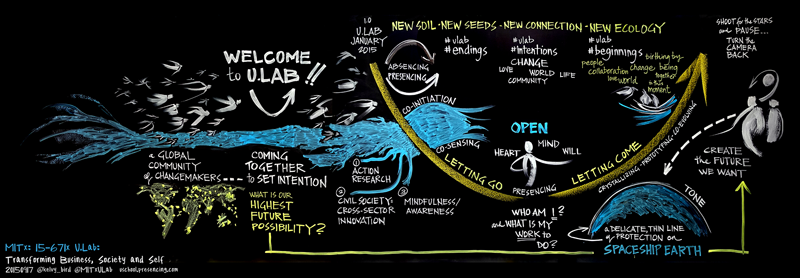 WELCOME
to U.LAB!!
1.0
U.LAB
JANUARY
2015
NEW SOIL - NEW SEEDS - NEW CONNECTION - NEW ECOLOGY
# ulab
# endings
# ulab
# intentions
CHANGE
LOVE WORLD LIFE
COMMUNITY
# ulab
# beginnings
people
collaboration
love
world
birthing by
change being
together
in this
moment
SHOOT for the STARS
and PAUSE...
TURN the
CAMERA
BACK
ABSENCING
PRESENCING
CO-INITIATION
CO-SENSING
LETTING GO
OPEN
HEART
MIND
WILL
PRESENCING
LETTING COME
CRYSTALLIZING-PROTOTYPING-CO-EVOLVING
CREATE
the FUTURE
WE WANT
a GLOBAL
COMMUNITY
of CHANGEMAKERS
COMING
TOGETHER
to SET INTENTION
WHAT IS OUR
HIGHEST
FUTURE
POSSIBILITY?
1 ACTION
RESEARCH
2 CIVIL SOCIETY:
CROSS-SECTOR
INNOVATION
3 MINDFULNESS/
AWARENESS
WHO AM I?
and WHAT IS MY
WORK to
DO?
TONE
A DELICATE, THIN LINE
of PROTECTION on
SPACESHIP EARTH
MITx: 15-671x U.Lab:
Transforming Business, Society and Self
20150117 @kelvy_bird @MITxULab uschool.presencing.com